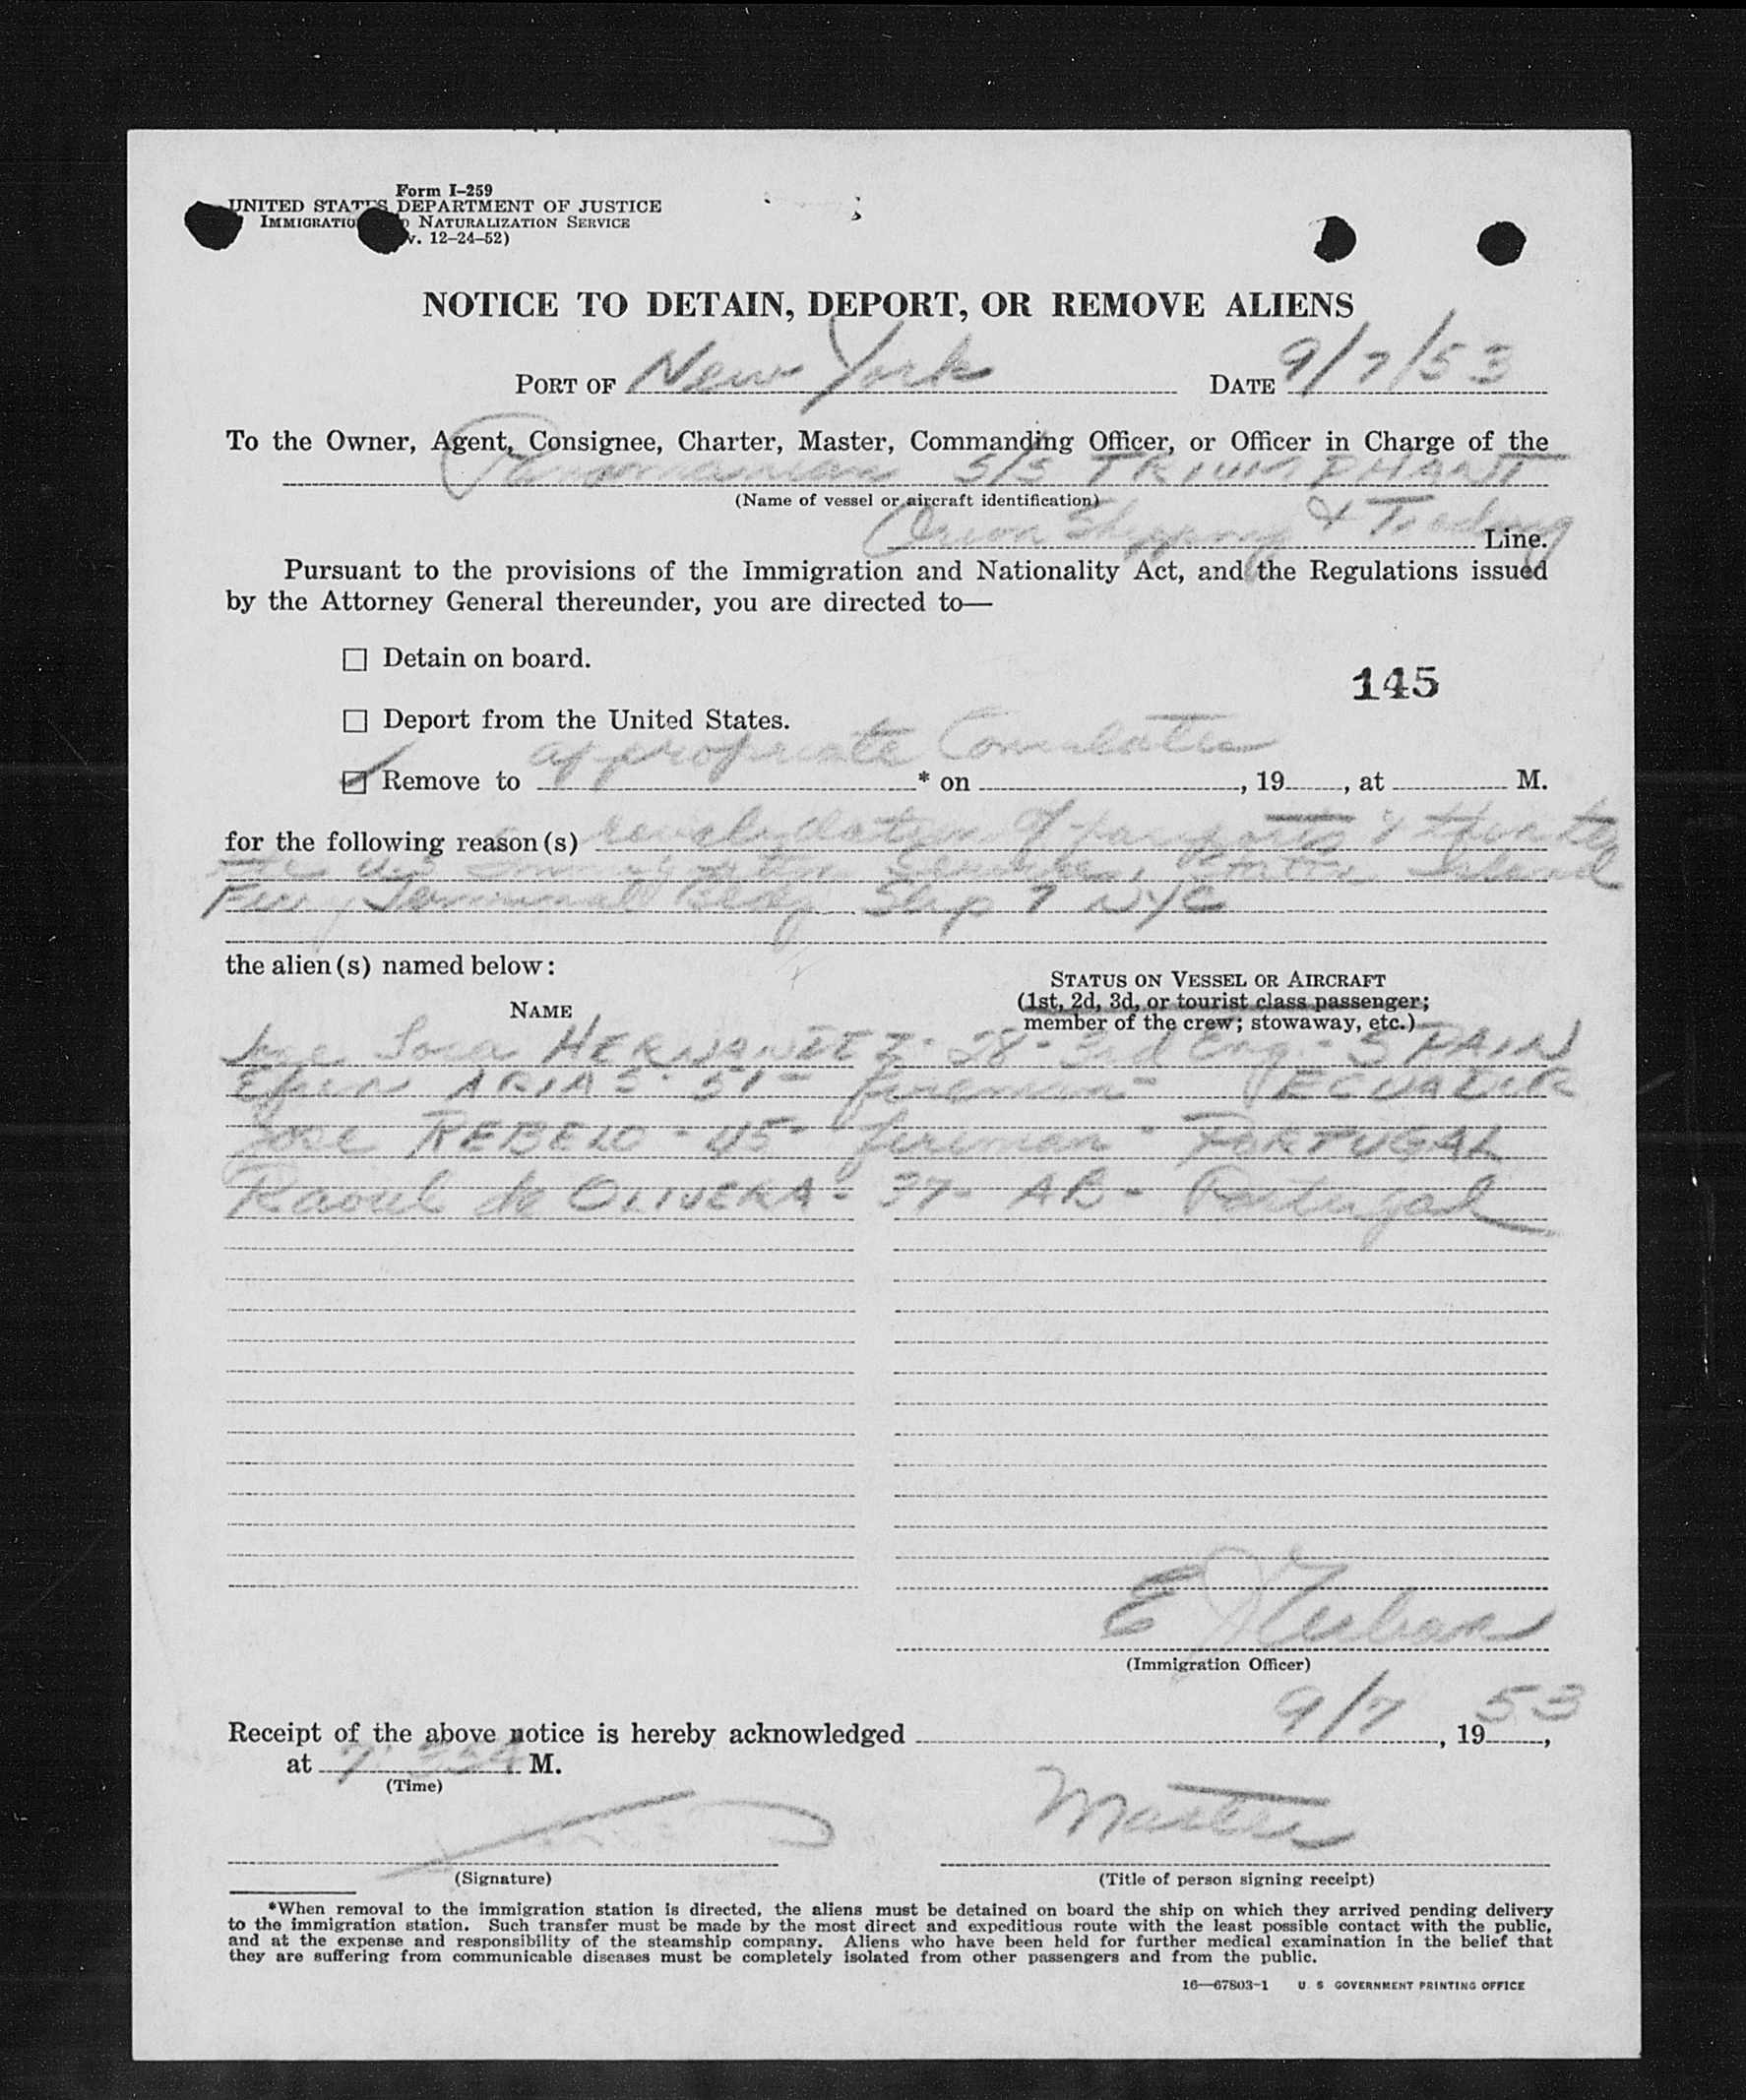 Form I-259
UNITED STATES DEPARTMENT OF JUSTICE
IMMIGRATION NATURALIZATION SERVICE
v. 12-24-52)
NOTICE TO DETAIN, DEPORT, OR REMOVE ALIENS
PORT OF New York DATE 9/7/53
To the Owner, Agent, Consignee, Charter, Master, Commanding Officer, or Officer in Charge of the
Panamanian S/S TRIUMPHANT
(Name of vessel or aircraft identification)
Orion Shipping & Trading Line.
Pursuant to the provisions of the Immigration and Nationality Act, and the Regulations issued
by the Attorney General thereunder, you are directed to—
☐ Detain on board.
145
☐ Deport from the United States.
☑ Remove to appropriate Consulates * on , 19 , at M.
for the following reason(s) revalidation of passports & thence to
the U.S. Immigration Service, Staten Island
Ferry Terminal Bldg Slip 7 NYC
the alien(s) named below:
STATUS ON VESSEL OR AIRCRAFT
(1st, 2d, 3d, or tourist class passenger;
NAME
member of the crew; stowaway, etc.)
Jose Sosa HERNANDEZ - 28 - 3rd Eng. - SPAIN
Efren ARIAS - 51 - fireman - ECUADOR
Jose REBELO - 45 - fireman - PORTUGAL
Raoul de OLIVERA - 37 - AB - Portugal
E
(Immigration Officer)
Receipt of the above notice is hereby acknowledged 9/7, 1953,
at 7 M.
(Time)
Master
(Signature) (Title of person signing receipt)
*When removal to the immigration station is directed, the aliens must be detained on board the ship on which they arrived pending delivery
to the immigration station. Such transfer must be made by the most direct and expeditious route with the least possible contact with the public,
and at the expense and responsibility of the steamship company. Aliens who have been held for further medical examination in the belief that
they are suffering from communicable diseases must be completely isolated from other passengers and from the public.
16—67803-1 U. S GOVERNMENT PRINTING OFFICE